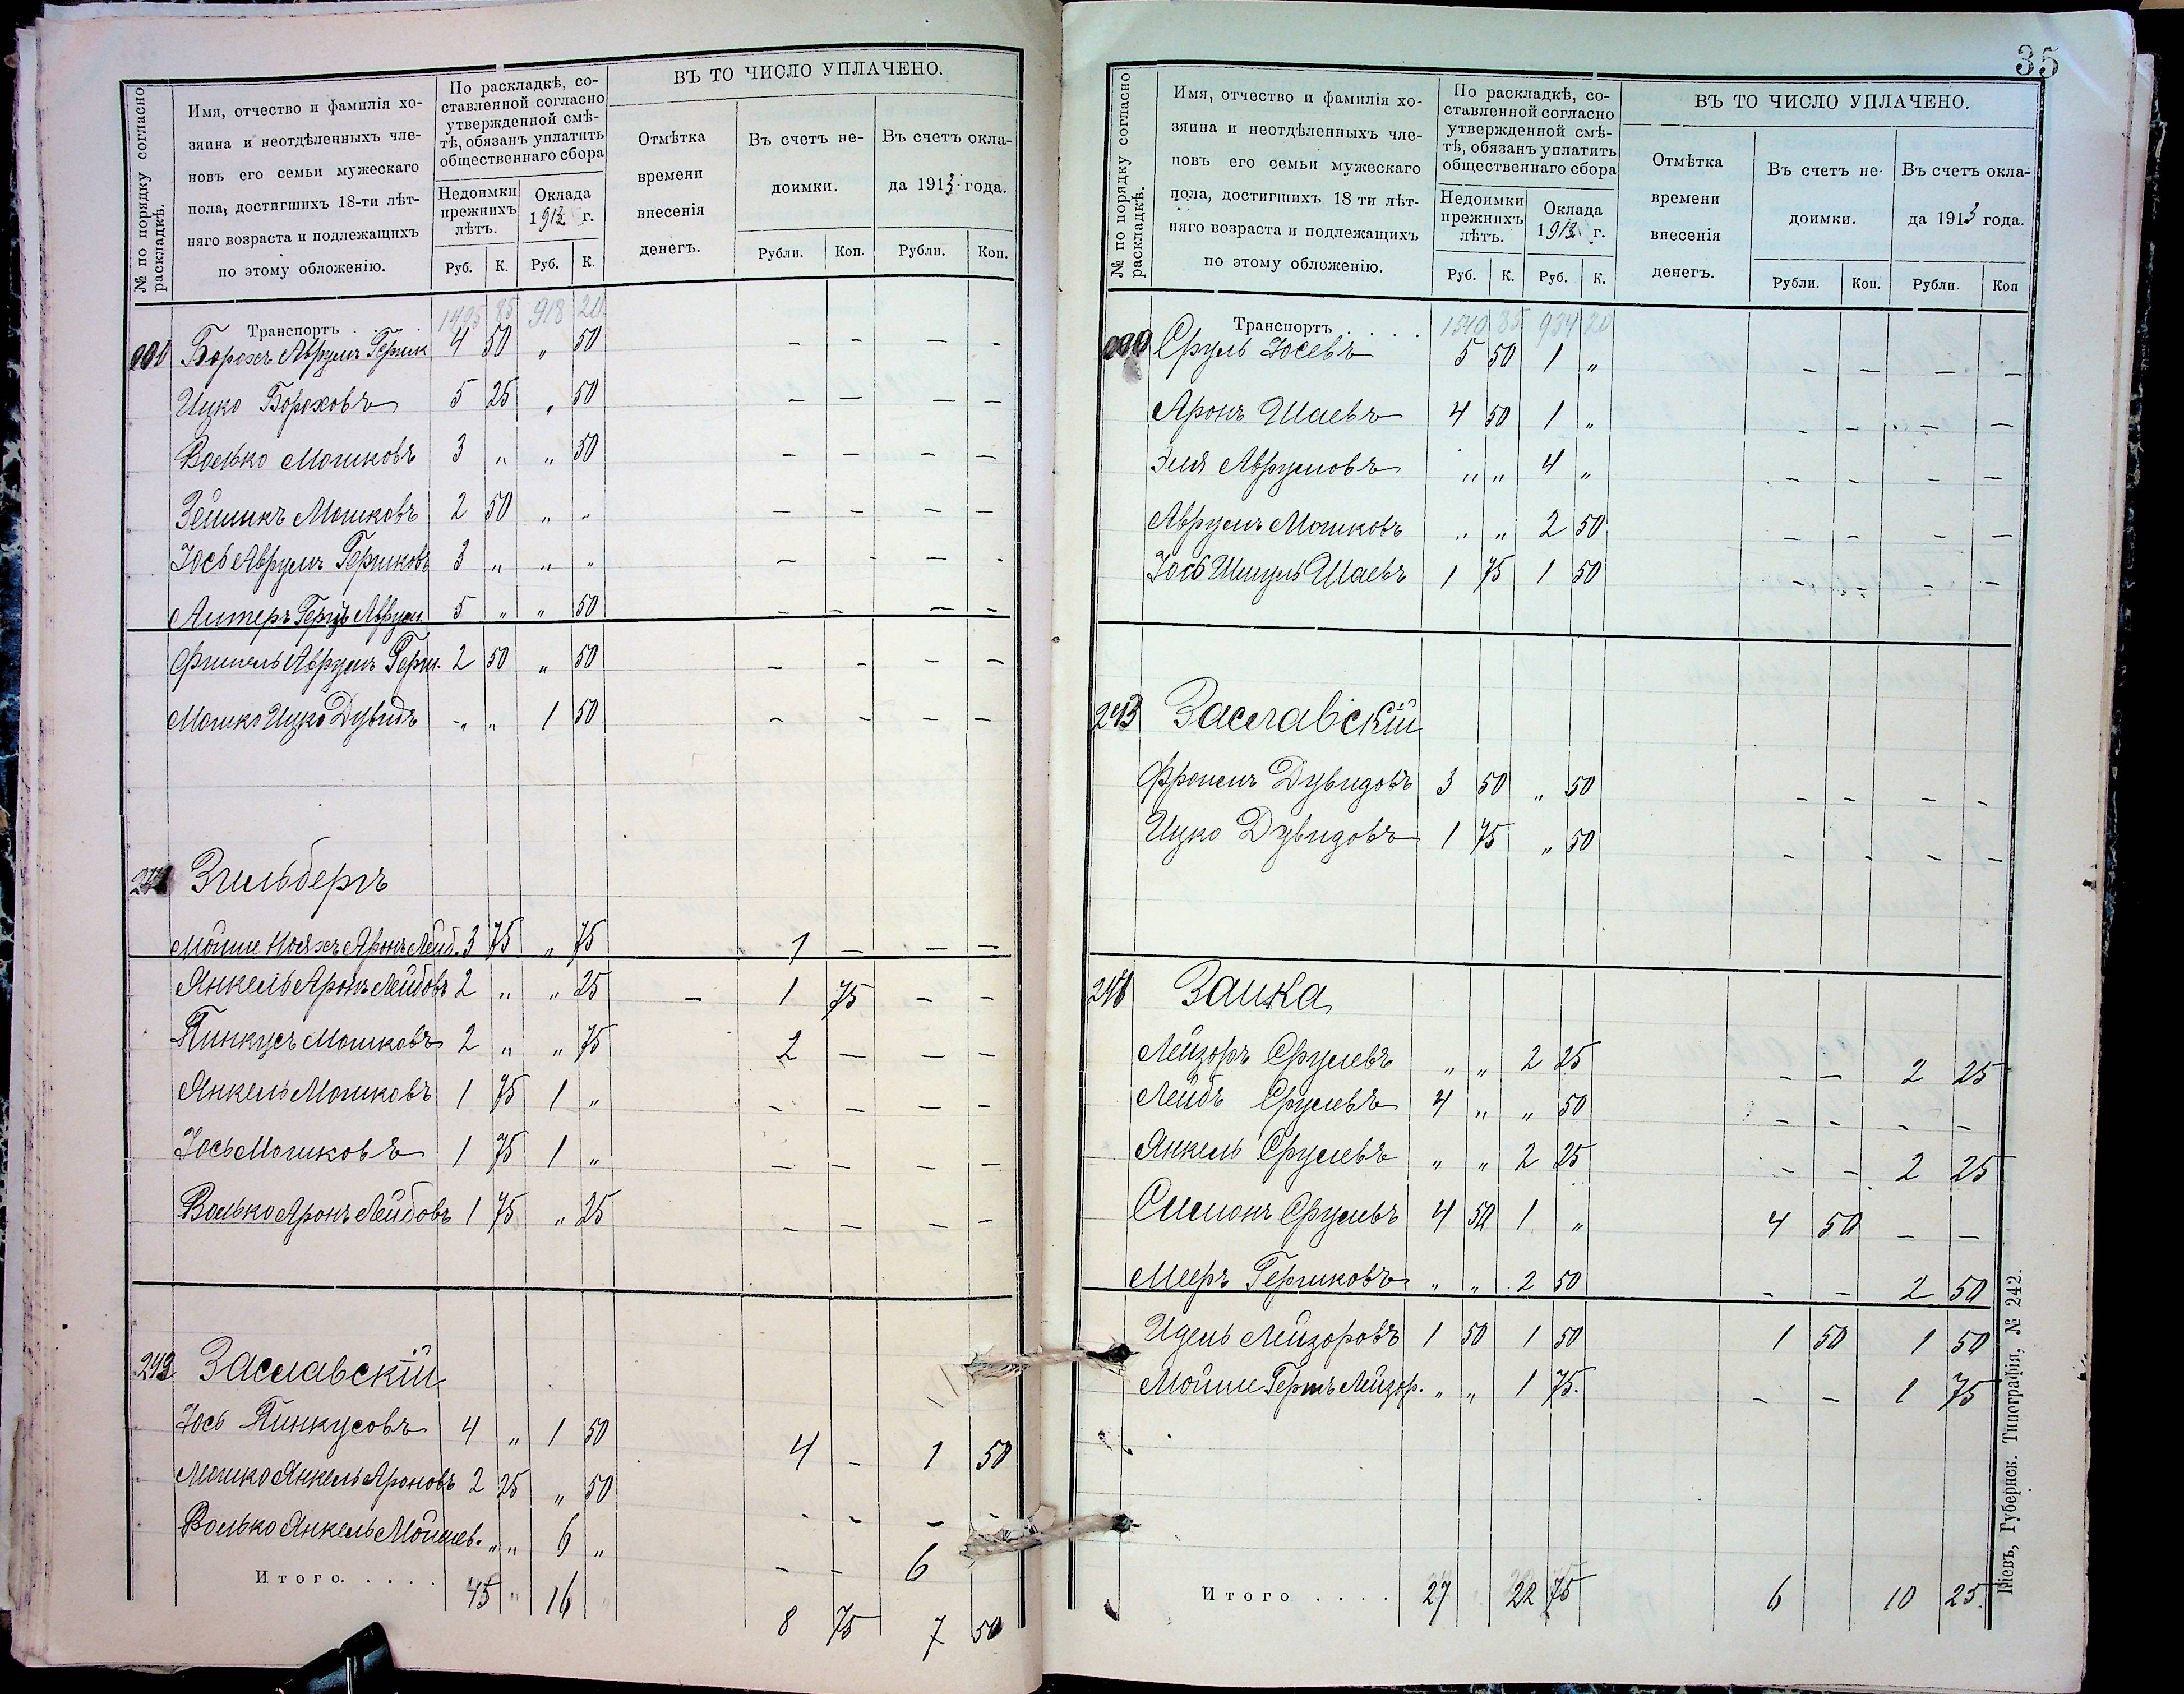 № по порядку согласно раскладкѣ.
Имя, отчество и фамилія хо-
зяина и неотдѣленныхъ чле-
новъ его семьи мужескаго
пола, достигшихъ 18-ти лѣт-
няго возраста и подлежащихъ
по этому обложенію.
По раскладкѣ, со-
ставленной согласно
утвержденной смѣ-
тѣ, обязанъ уплатить
общественнаго сбора
Недоимки
прежнихъ
лѣтъ.
Оклада
1913 г.
Руб. К. Руб. К.
ВЪ ТО ЧИСЛО УПЛАЧЕНО.
Отмѣтка
времени
внесенія
денегъ.
Въ счетъ не-
доимки.
Въ счетъ окла-
да 1913 года.
Рубли. Коп. Рубли. Коп.
Транспортъ . . . . 1495 85 918 20
Борохъ Аврумъ Гершк 4 50 „ 50 – – – –
Ицко Бороховъ 5 25 „ 50 – – – –
Волько Мошковъ 3 „ „ 50 – – – –
Зейликъ Мошковъ 2 50 „ „ – – – –
Іось Аврумъ Гершковъ 3 „ „ „ – - – -
Алтеръ Гершъ Аврум. 5 „ „ 50 – – – –
Фишель Аврумъ Герш. 2 50 „ 50 – – – –
Мошко Ицко Дувидъ „ „ 1 50 – – – –
241 Зильбергъ
Мойше Нояхъ Аронъ Лейб. 3 75 „ 75 1 – – –
Янкель Аронъ Лейбовъ 2 „ „ 25 – 1 75 – –
Пинкусъ Мошковъ 2 „ „ 75 2 – – –
Янкель Мошковъ 1 75 1 „ – – – –
Іось Мошковъ 1 75 1 „ – – – –
Волько Аронъ Лейбовъ 1 75 „ 25 – – – –
242 Заславскій
Іось Пинкусовъ 4 „ 1 50 4 – 1 50
Мошко Янкель Ароновъ 2 25 „ 50 - – – -
Волько Янкель Мойшев. „ „ 6 „ – – 6
Итого. . . . . 45 „ 16 „ 8 75 7 50
35
№ по порядку согласно раскладкѣ.
Имя, отчество и фамилія хо-
зяина и неотдѣленныхъ чле-
новъ его семьи мужескаго
пола, достигшихъ 18 ти лѣт-
няго возраста и подлежащихъ
по этому обложенію.
По раскладкѣ, со-
ставленной согласно
утвержденной смѣ-
тѣ, обязанъ уплатить
общественнаго сбора
Недоимки
прежнихъ
лѣтъ.
Оклада
1913 г.
Руб. К. Руб. К.
ВЪ ТО ЧИСЛО УПЛАЧЕНО.
Отмѣтка
времени
внесенія
денегъ.
Въ счетъ не-
доимки.
Въ счетъ окла-
да 1913 года.
Рубли. Коп. Рубли. Коп
Транспортъ . . . . 1540 85 934 20
Сруль Іосевъ 5 50 1 „ – – – –
Аронъ Шаевъ 4 50 1 „ – – – –
Эля Аврумовъ „ „ 4 „ – – – –
Аврумъ Мошковъ „ „ 2 50 – – – –
Іось Шмуль Шаевъ 1 75 1 50 – – – –
243 Заславскій
Фроимъ Дувидовъ 3 50 „ 50 – – – –
Ицко Дувидовъ 1 75 „ 50 – – – –
Заика
Лейзоръ Срулевъ „ „ 2 25 – – 2 25
Лейбъ Срулевъ 4 „ „ 50 – – – –
Янкель Срулевъ „ „ 2 25 – – 2 25
Симонъ Срулевъ 4 50 1 „ 4 50 – –
Мееръ Гершковъ „ „ 2 50 – – 2 50
Идель Лейзоровъ 1 50 1 50 1 50 1 50
Мойше Гершъ Лейзор. „ „ 1 75. – – 1 75
Итого . . . . 27 22 75 6 10 25.
Кіевъ, Губернск. Типографія, № 242.